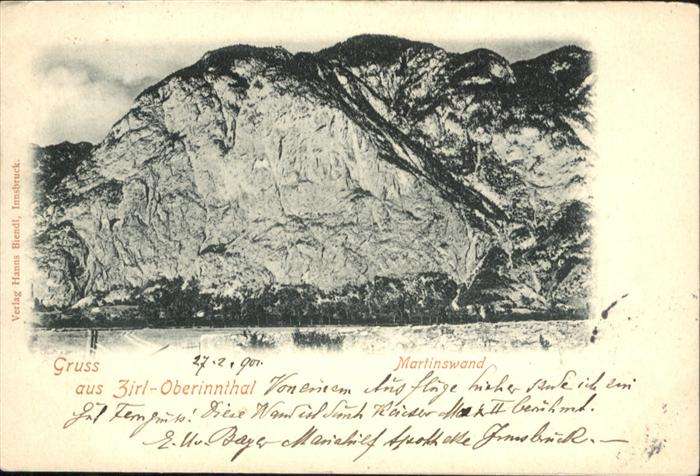 Verlag Hanns Biendl, Innsbruck.
Gruss 27.2.901. Martinswand
aus Zirl-Oberinnthal Von einem Ausfluge hieher sende ich ein
gut Ferngruss! Diese Wand ist durch Kaiser Max II berühmt.
E. W. Bayer Mariahilf Apotheke Innsbruck.